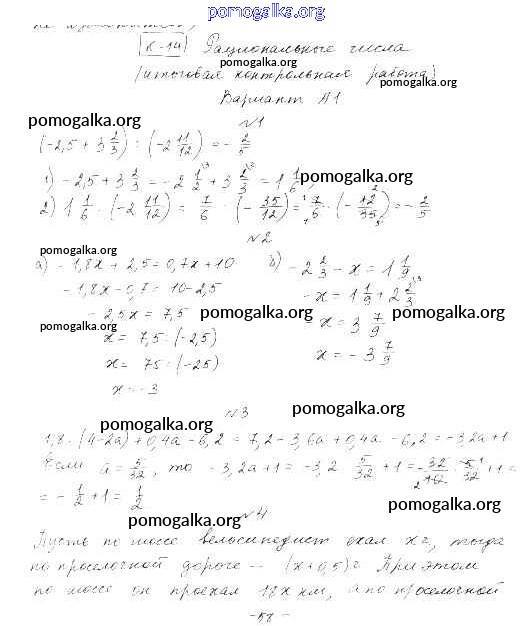 pomogalka.org
К-14 Рациональные числа
pomogalka.org
(итоговая контрольная работа)
pomogalka.org
Вариант А1
№1
pomogalka.org
(-2,5 + 3 2/3) : (-2 11/12) = - 2/5
1) -2,5 + 3 2/3 = -2 1/2 + 3 2/3 = 1 1/6;
pomogalka.org
2) 1 1/6 : (-2 11/12) = 7/6 : (- 35/12) = 7/6 · (- 12/35) = - 2/5
№2
pomogalka.org
а) -1,8x + 2,5 = 0,7x + 10 б) -2 2/3 - x = 1 1/9
-1,8x - 0,7 = 10 - 2,5 -x = 1 1/9 + 2 2/3
-2,5x = 7,5 -x = 3 7/9
pomogalka.org pomogalka.org
pomogalka.org
x = 7,5 : (-2,5) x = -3 7/9
x = 75 : (-25)
x = -3
№3
pomogalka.org
pomogalka.org
1,8 · (4-2a) + 0,4a - 6,2 = 7,2 - 3,6a + 0,4a - 6,2 = -3,2a + 1
Если a = 5/32, то -3,2a + 1 = -3,2 · 5/32 + 1 = - 32/10 · 5/32 + 1 =
= - 1/2 + 1 = 1/2
pomogalka.org
pomogalka.org
№4
Пусть по шоссе велосипедист ехал x ч, тогда
по проселочной дороге – (x + 0,5) ч. При этом
pomogalka.org
по шоссе он проехал 18x км, а по проселочной
-58-